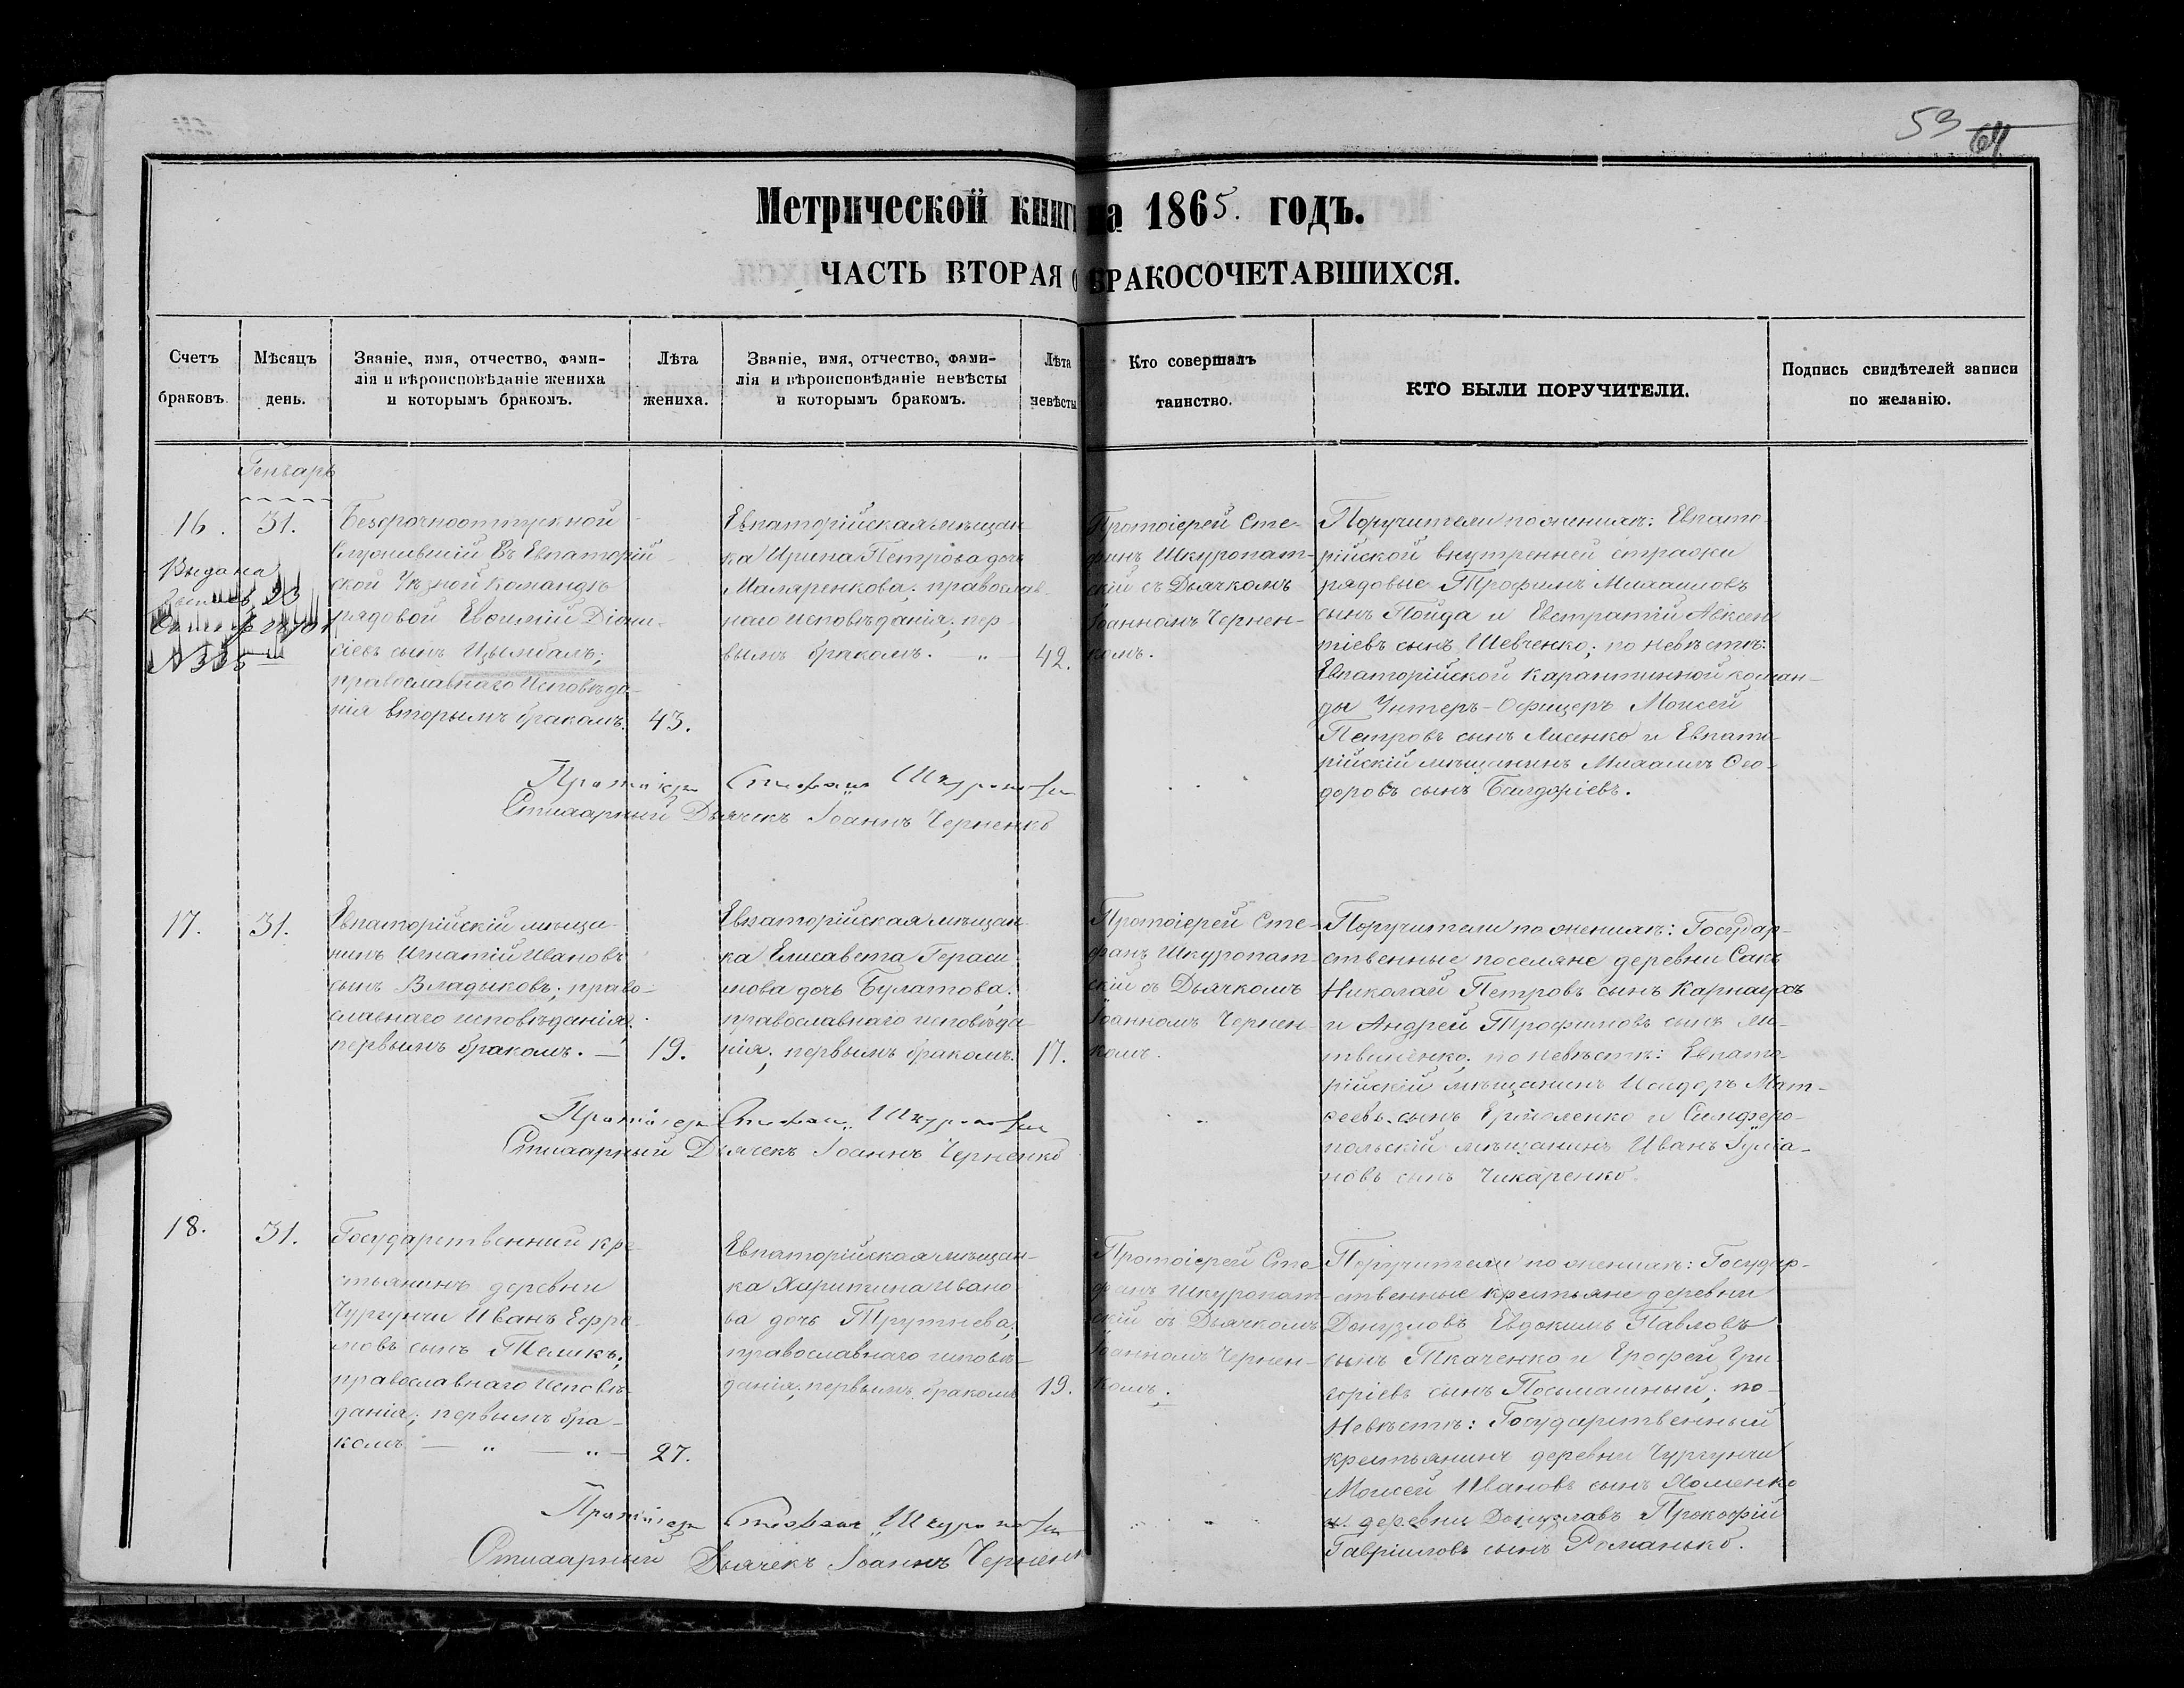 53 64
Метрической книг на 1865. годъ.
ЧАСТЬ ВТОРАЯ О БРАКОСОЧЕТАВШИХСЯ.
Счетъ
браковъ.
Мѣсяцъ
день.
Званіе, имя, отчество, фами-
лія и вѣроисповѣданіе жениха
и которымъ бракомъ.
Лѣта
жениха.
Званіе, имя, отчество, фами-
лія и вѣроисповѣданіе невѣсты
и которымъ бракомъ.
Лѣта
невѣсты
Кто совершалъ
таинство.
КТО БЫЛИ ПОРУЧИТЕЛИ.
Подпись свидѣтелей записи
по желанію.
Генварь
16. 31.
Выдана
23
№ 335
Безсрочноотпускной
служившій въ Евпаторій
ской Уѣздной командѣ
рядовой Евѳимій Діони-
сіевъ сынъ Цымбалъ;
православнаго исповѣда-
нія вторымъ бракомъ. 43.
Евпаторійская мѣщан
ка Ирина Петрова дочь
Маляренкова; православ-
наго исповѣданія; пер-
вымъ бракомъ. „ 42.
Протоіерей Сте-
фанъ Шкуропат-
скій съ Дьячкомъ
Іоанномъ Чернен-
комъ.
Поручители по женихѣ: Евпато-
рійской внутренней стражи
рядовые Трофимъ Михаиловъ
сынъ Пойда и Евстратій Авксен
тіевъ сынъ Шевченко; по невѣстѣ:
Евпаторійской карантинной коман-
ды Унтеръ-Офицеръ Моисей
Петровъ сынъ Лисенко и Евпато-
рійскій мѣщанинъ Михаилъ Ѳео-
доровъ сынъ Балдоріевъ.
Протоіерей Стефанъ
Стихарный Дьячекъ Іоаннъ Черненко
17. 31.
Евпаторійскій мѣща-
нинъ Игнатій Ивановъ
сынъ Владыковъ; право-
славнаго исповѣданія;
первымъ бракомъ. — 19.
Евпаторійская мѣщан-
ка Елисавета Гераси-
мова дочь Булатова;
православнаго исповѣда-
нія; первымъ бракомъ. 17.
Протоіерей Сте-
фанъ Шкуропат-
скій съ Дьячкомъ
Іоанномъ Чернен-
комъ.
Поручители по женихѣ: Государ-
ственные поселяне деревни Сакъ
Николай Петровъ сынъ Карнаухъ
и Андрей Трофимовъ сынъ Ли-
твиненко; по невѣстѣ: Евпато-
рійскій мѣщанинъ Исидоръ Мат-
ѳеевъ сынъ Ермоленко и Симферо-
польскій мѣщанинъ Иванъ Іуліа-
новъ сынъ Чикаренко.
Протоіерей Стефанъ
Стихарный Дьячекъ Іоаннъ Черненко
18. 31.
Государственный кре-
стьянинъ деревни
Чургунчи Иванъ Ефре-
мовъ сынъ Теликъ;
православнаго исповѣ-
данія; первымъ бра-
комъ — „ — „ — 27.
Евпаторійская мѣщан-
ка Харитина Ивано-
ва дочь Трутнева;
православнаго исповѣ-
данія; первымъ бракомъ 19.
Протоіерей Сте-
фанъ Шкуропат-
скій съ Дьячкомъ
Іоанномъ Чернен-
комъ.
Поручители по женихѣ: Государ-
ственные крестьяне деревни
Донузловъ Евдокимъ Павловъ
сынъ Ткаченко и Ерофей Гри-
горіевъ сынъ Посмашный; по-
невѣстѣ: Государственный
крестьянинъ деревни Чургунчи
Моисей Ивановъ сынъ Хоменко
и деревни Донузлавъ Прокофій
Гавріиловъ сынъ Романько.
Протоіерей Стефанъ
Стихарный Дьячекъ Іоаннъ Черненк